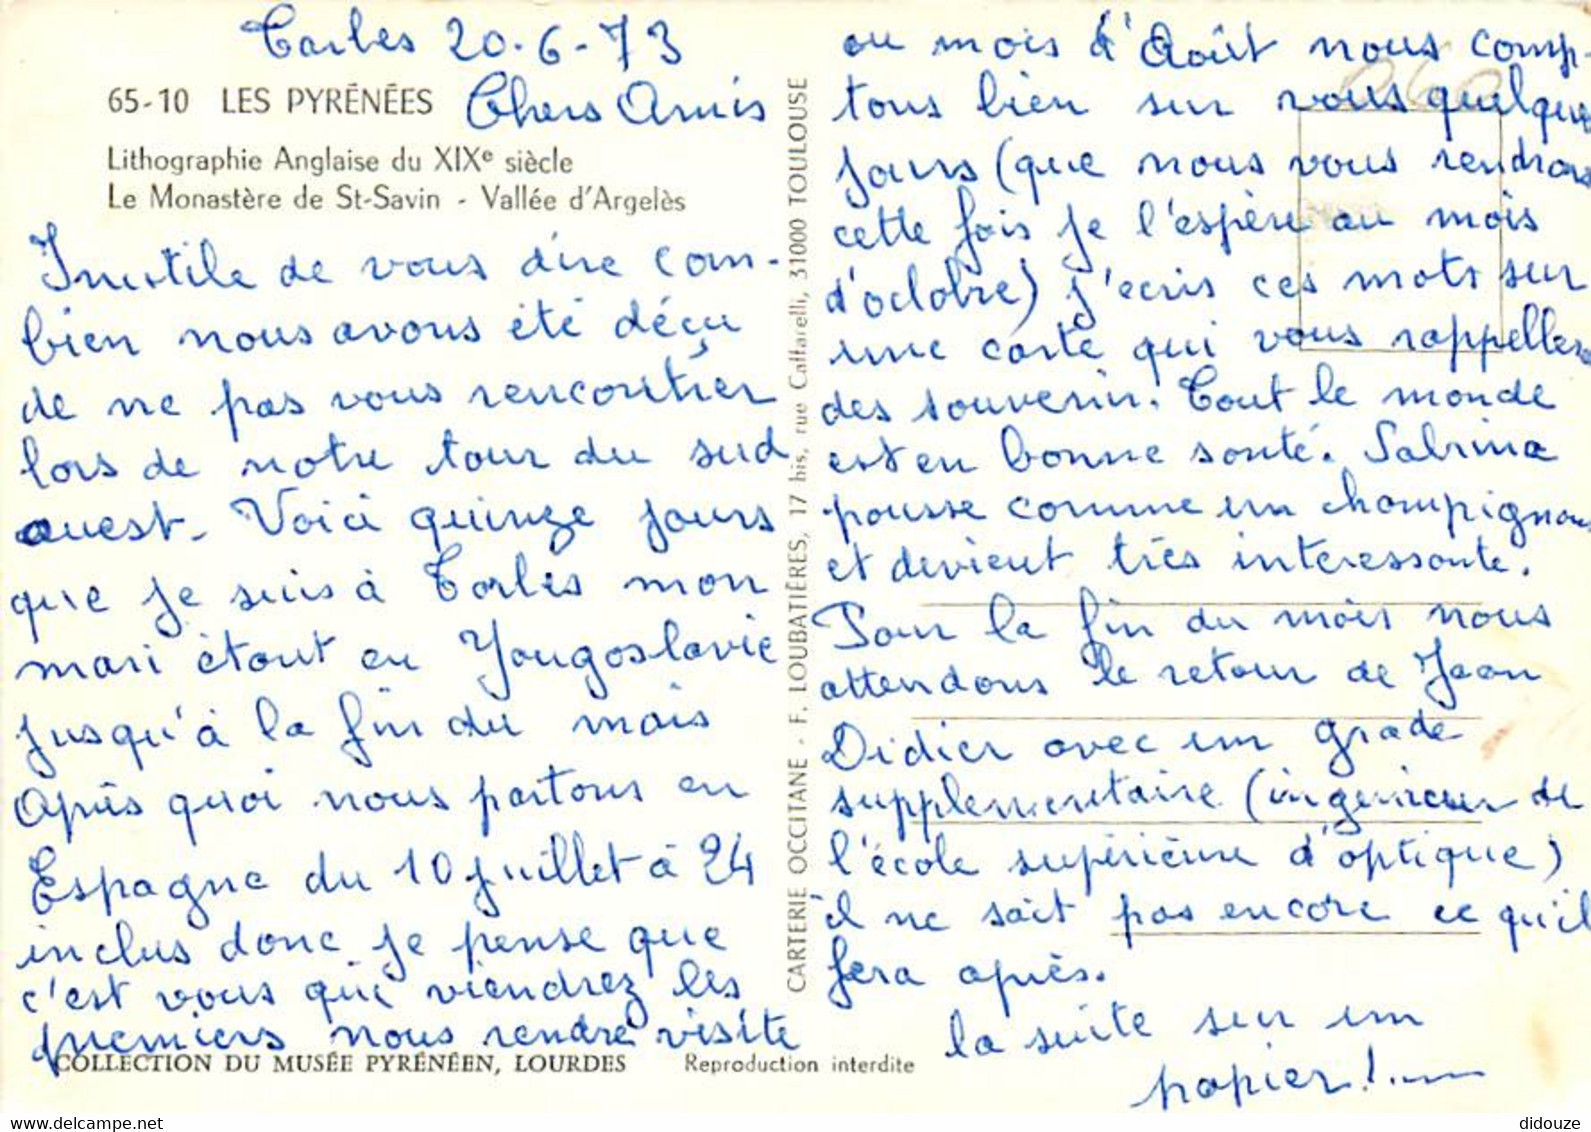 Tarbes 20-6-73
65-10 LES PYRÉNÉES
Chers Amis
Lithographie Anglaise du XIXe siècle
Le Monastère de St-Savin - Vallée d'Argelès
Inutile de vous dire com-
bien nous avons été déçu
de ne pas vous rencontrer
lors de notre tour du sud
ouest. Voici quinze jours
que je suis à Tarbes mon
mari étant en Yougoslavie
jusqu'à la fin du mois
Après quoi nous partons en
Espagne du 10 juillet à 24
inclus donc je pense que
c'est vous qui viendrez les
premiers nous rendre visite
COLLECTION DU MUSÉE PYRÉNÉEN, LOURDES Reproduction interdite
CARTERIE OCCITANE - F. LOUBATIÈRES, 17 bis, rue Caffarelli, 31000 TOULOUSE
au mois d'Août nous comp-
tons bien sur vous quelques
jours (que nous vous rendrons
cette fois je l'espère au mois
d'octobre) j'ecris ces mots sur
une carte qui vous rappellera
des souvenirs. Tout le monde
est en bonne santé. Sabrina
pousse comme un champignon
et devient très interessante.
Pour la fin du mois nous
attendons le retour de Jean
Didier avec un grade
supplementaire (ingenieur de
l'école supérieure d'optique)
il ne sait pas encore ce qu'il
fera après.
la suite sur un
papier!...
didouze